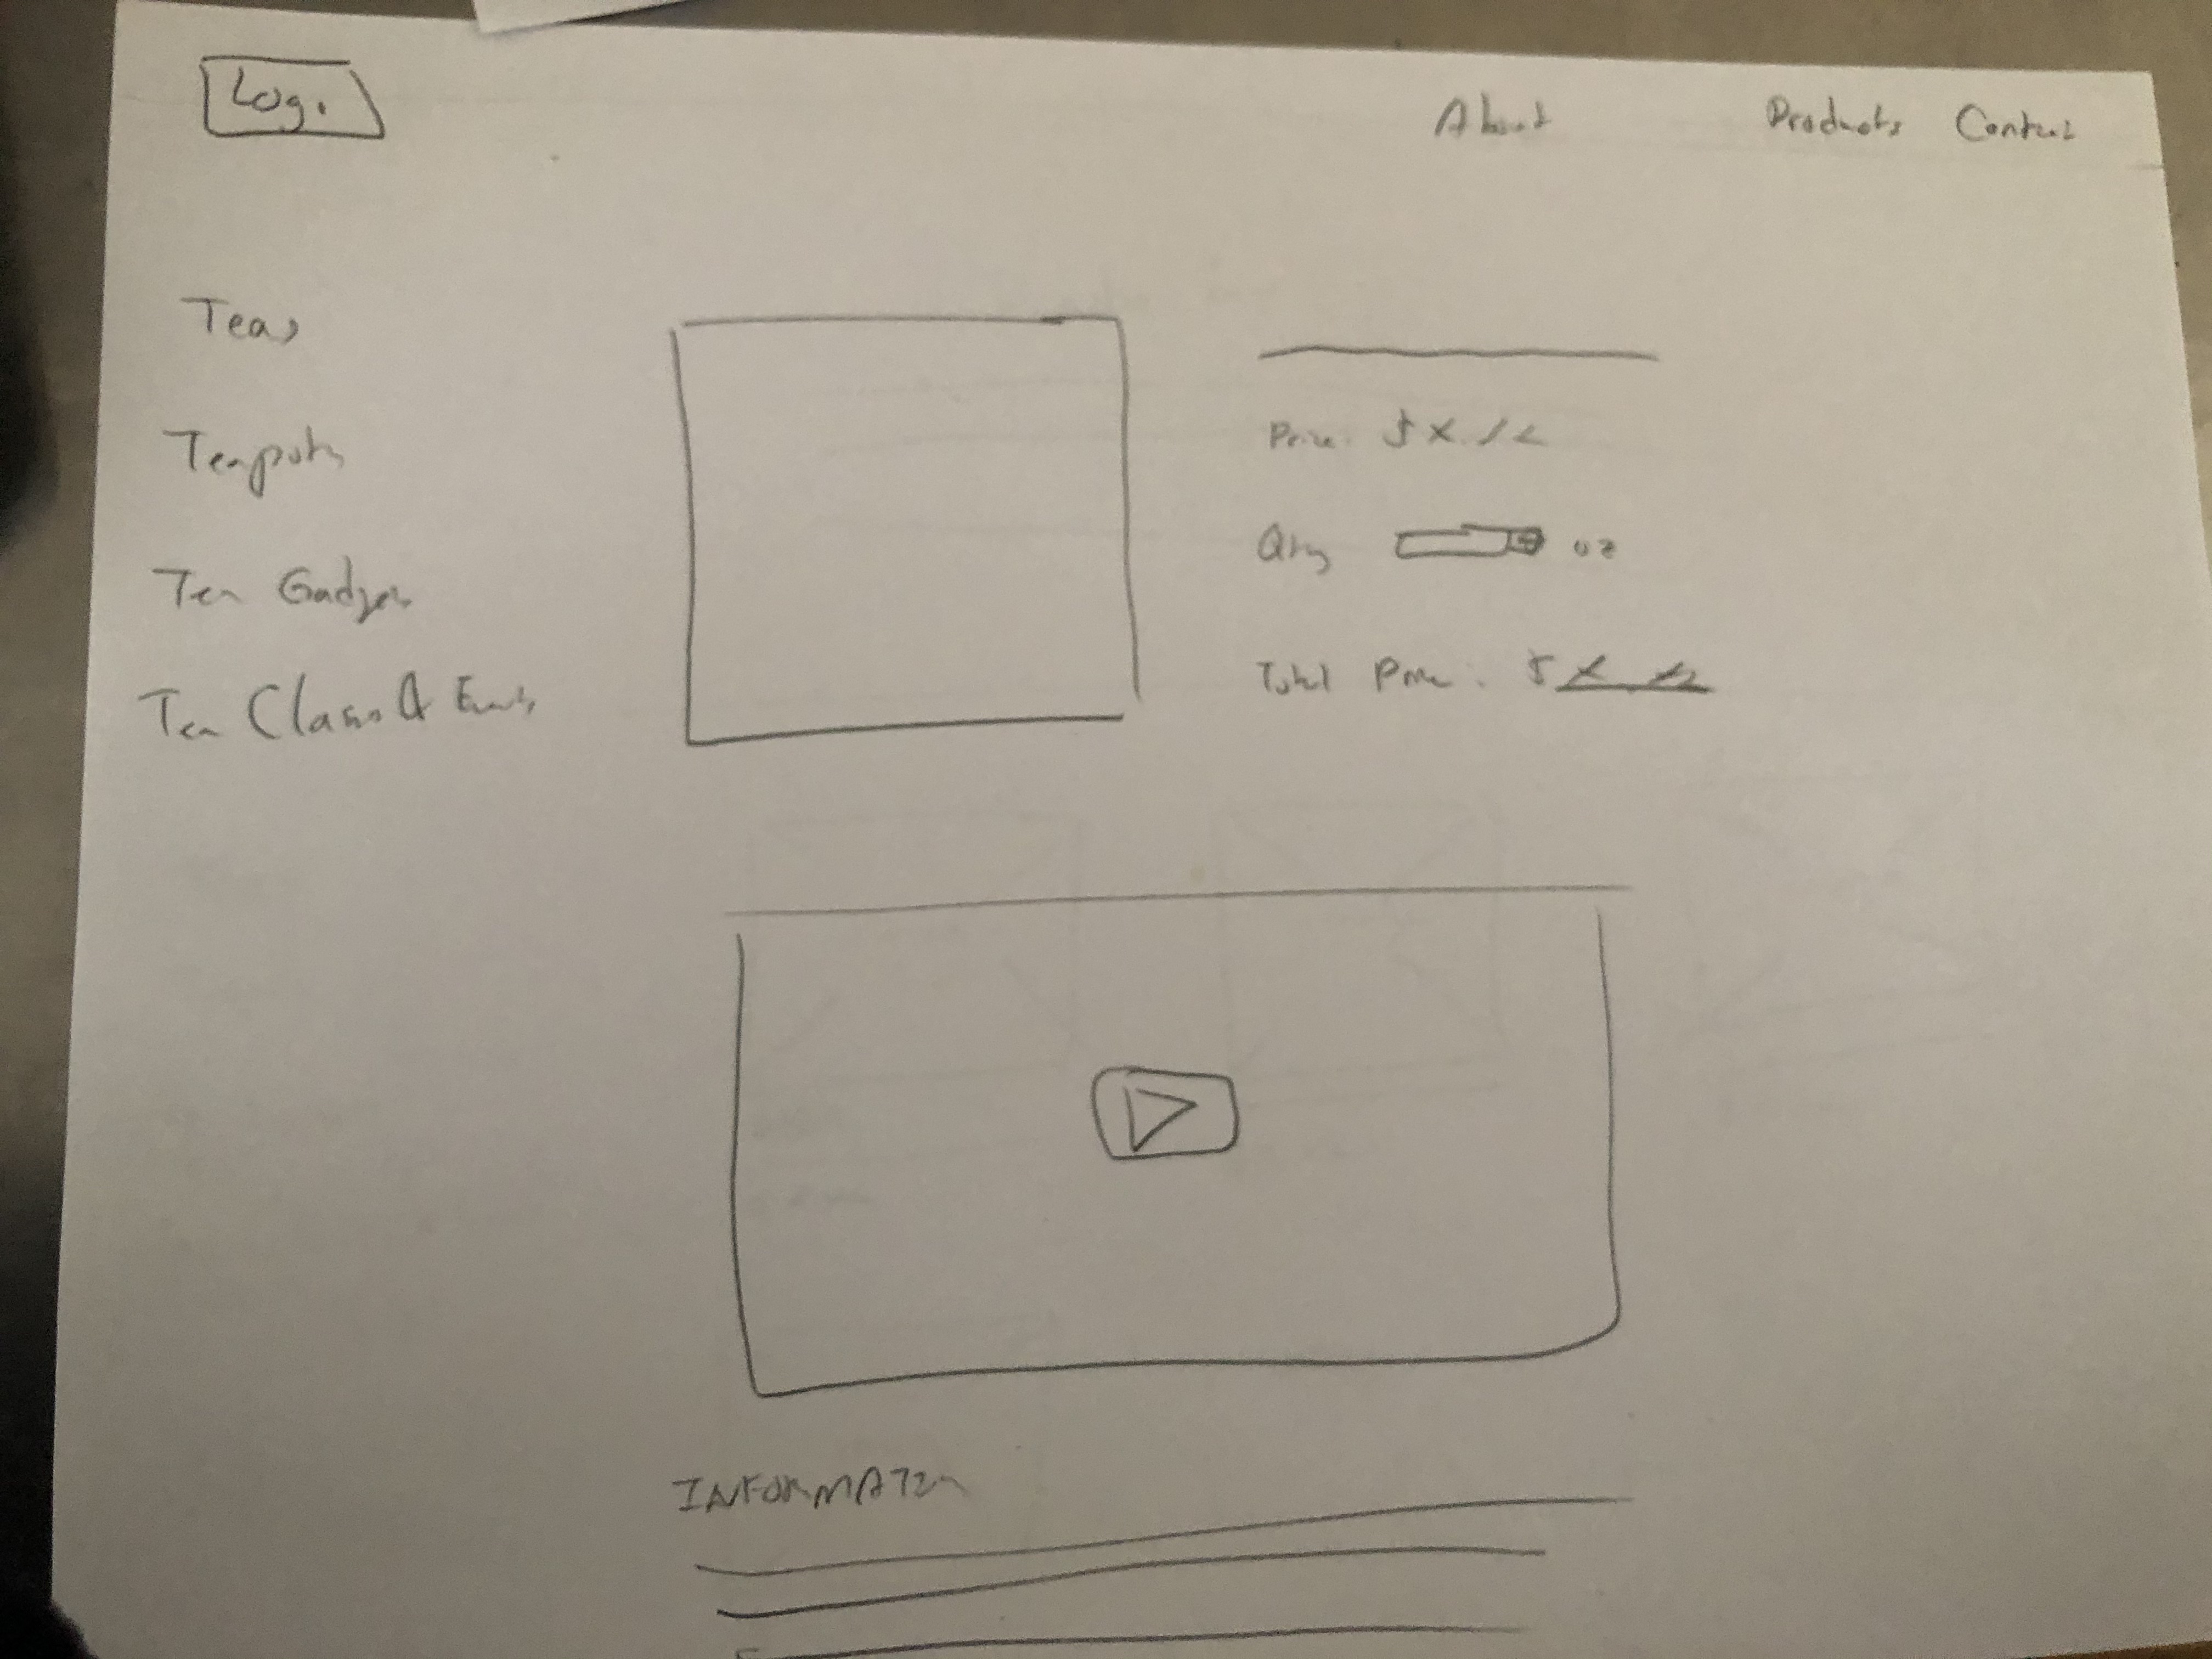 Logo About Products Contact
Teas
Teapots
Tea Gadgets
Tea Classes & Events
Price: $x.xx
Qty oz
Total Price: $x.xx
INFORMATION